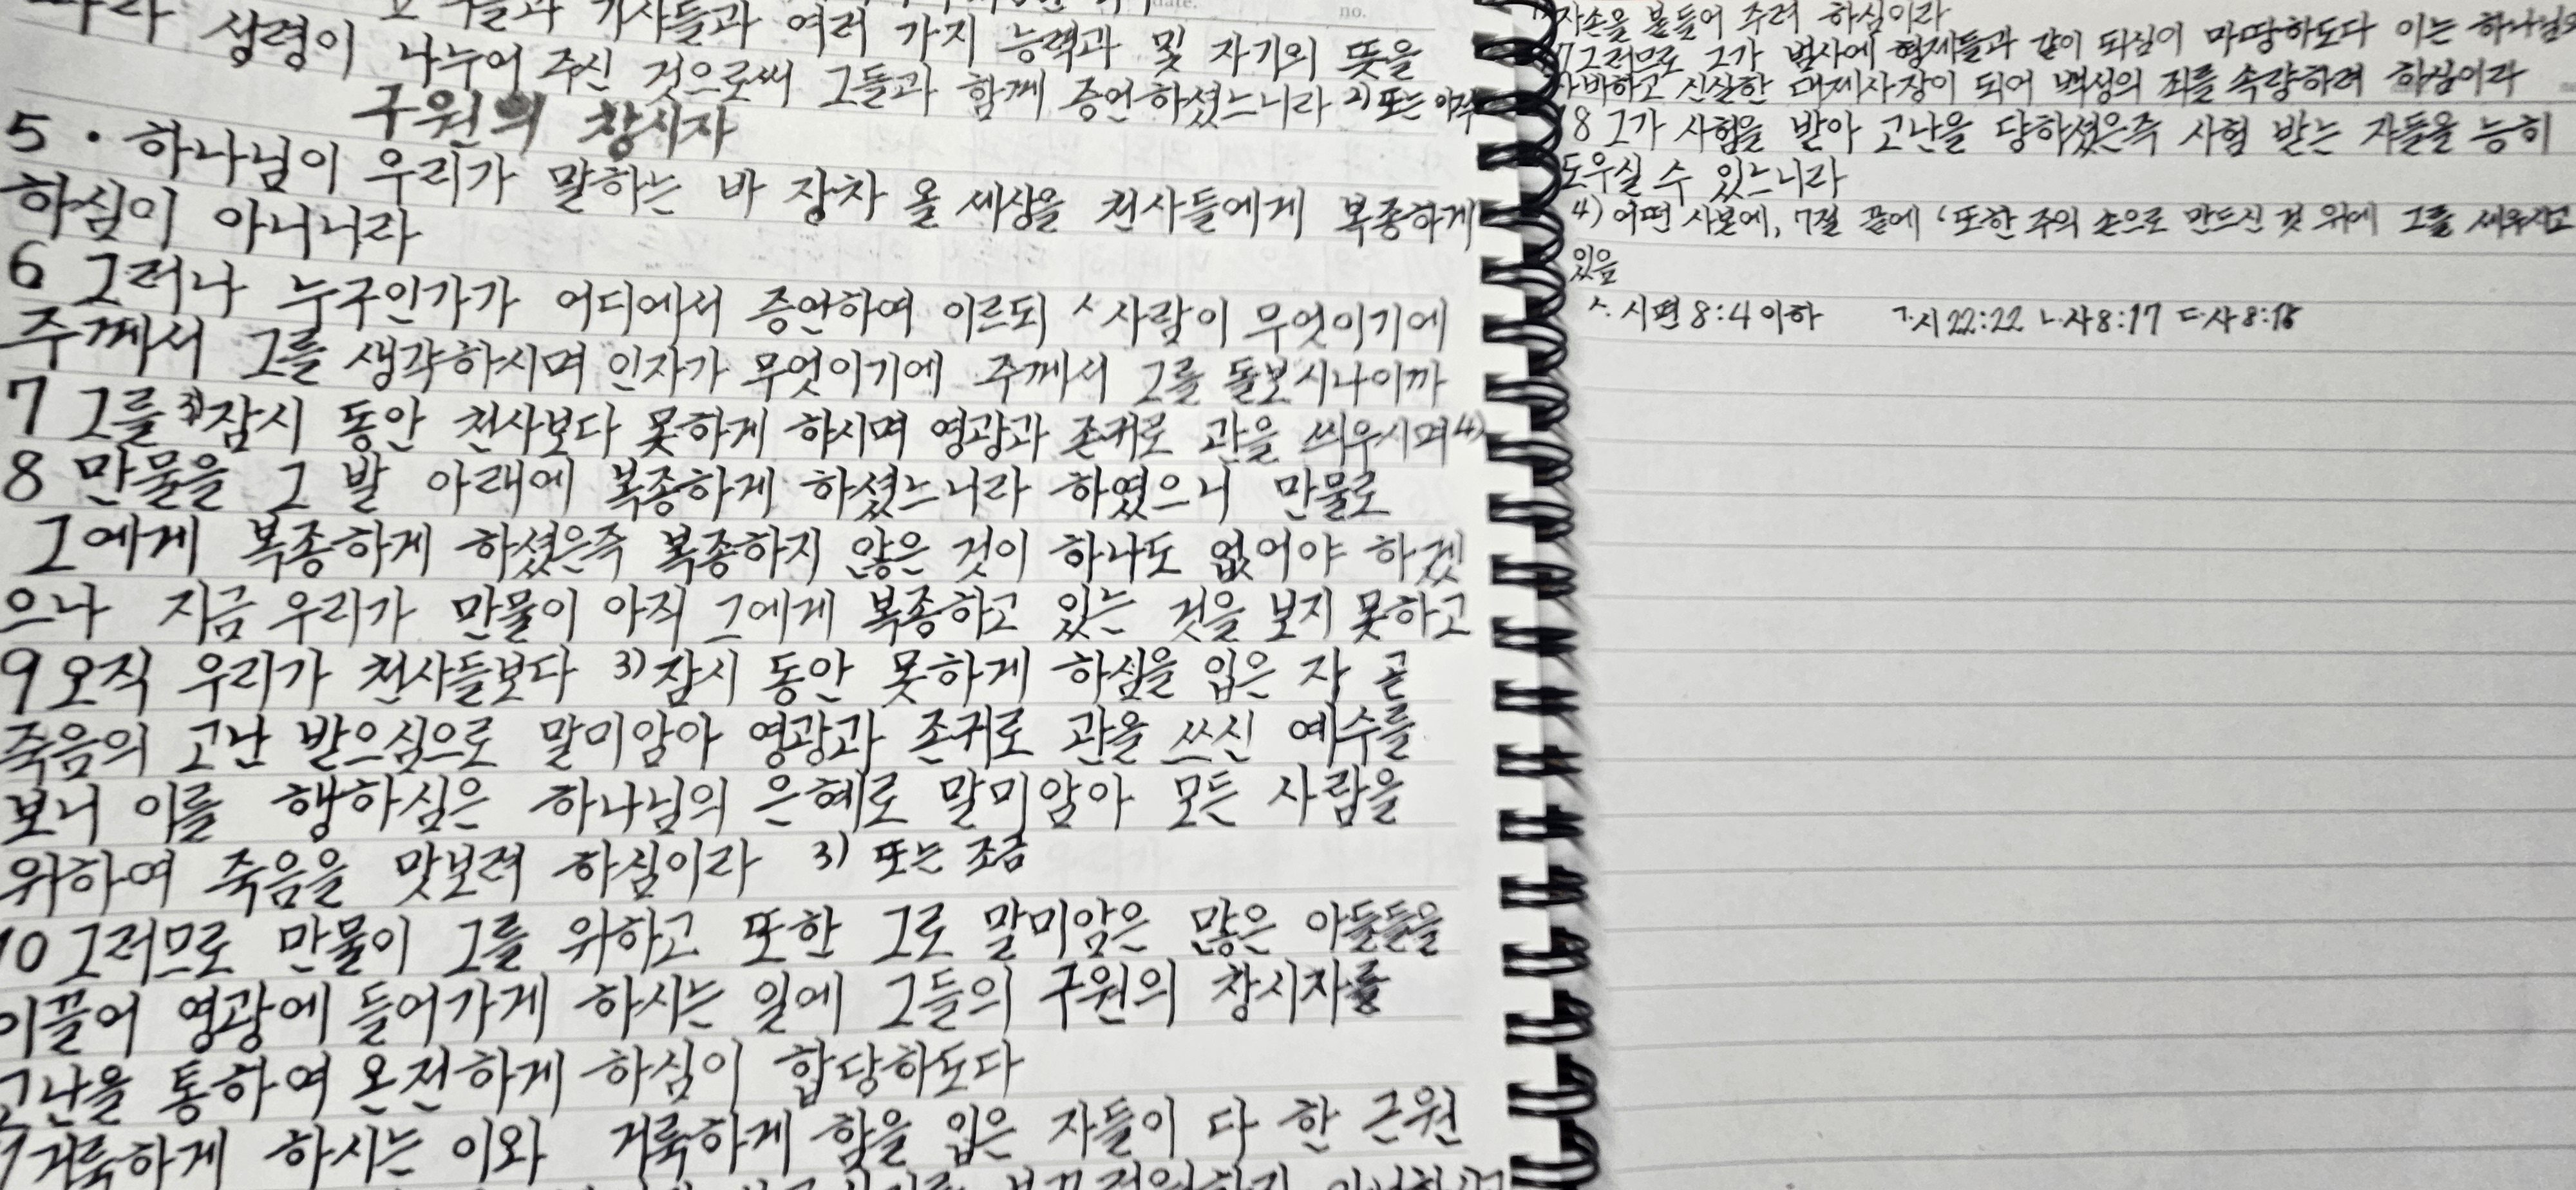 표적들과 기사들과 여러 가지 능력과 및 자기의 뜻을
따라 성령이 나누어 주신 것으로써 그들과 함께 증언하셨느니라 2) 또는
구원의 창시자
5 · 하나님이 우리가 말하는 바 장차 올 세상을 천사들에게 복종하게
하심이 아니니라
6 그러나 누구인가가 어디에서 증언하여 이르되 ㅅ사람이 무엇이기에
주께서 그를 생각하시며 인자가 무엇이기에 주께서 그를 돌보시나이까
7 그를 3)잠시 동안 천사보다 못하게 하시며 영광과 존귀로 관을 씌우시며4)
8 만물을 그 발 아래에 복종하게 하셨느니라 하였으니 만물로
그에게 복종하게 하셨은즉 복종하지 않은 것이 하나도 없어야 하겠
으나 지금 우리가 만물이 아직 그에게 복종하고 있는 것을 보지 못하고
9 오직 우리가 천사들보다 3)잠시 동안 못하게 하심을 입은 자 곧
죽음의 고난 받으심으로 말미암아 영광과 존귀로 관을 쓰신 예수를
보니 이를 행하심은 하나님의 은혜로 말미암아 모든 사람을
위하여 죽음을 맛보려 하심이라 3) 또는 조금
10 그러므로 만물이 그를 위하고 또한 그로 말미암은 많은 아들들을
이끌어 영광에 들어가게 하시는 일에 그들의 구원의 창시자를
고난을 통하여 온전하게 하심이 합당하도다
거룩하게 하시는 이와 거룩하게 함을 입은 자들이 다 한 근원
자손을 붙들어 주려 하심이라
7 그러므로 그가 범사에 형제들과 같이 되심이 마땅하도다 이는 하나님
자비하고 신실한 대제사장이 되어 백성의 죄를 속량하려 하심이라
18 그가 시험을 받아 고난을 당하셨은즉 시험 받는 자들을 능히
도우실 수 있느니라
4) 어떤 사본에, 7절 끝에 '또한 주의 손으로 만드신 것 위에 그를 세우시고
있음
ㅅ. 시편 8:4 이하 ㄱ.시 22:22 ㄴ.사 8:17 ㄷ.사 8:18